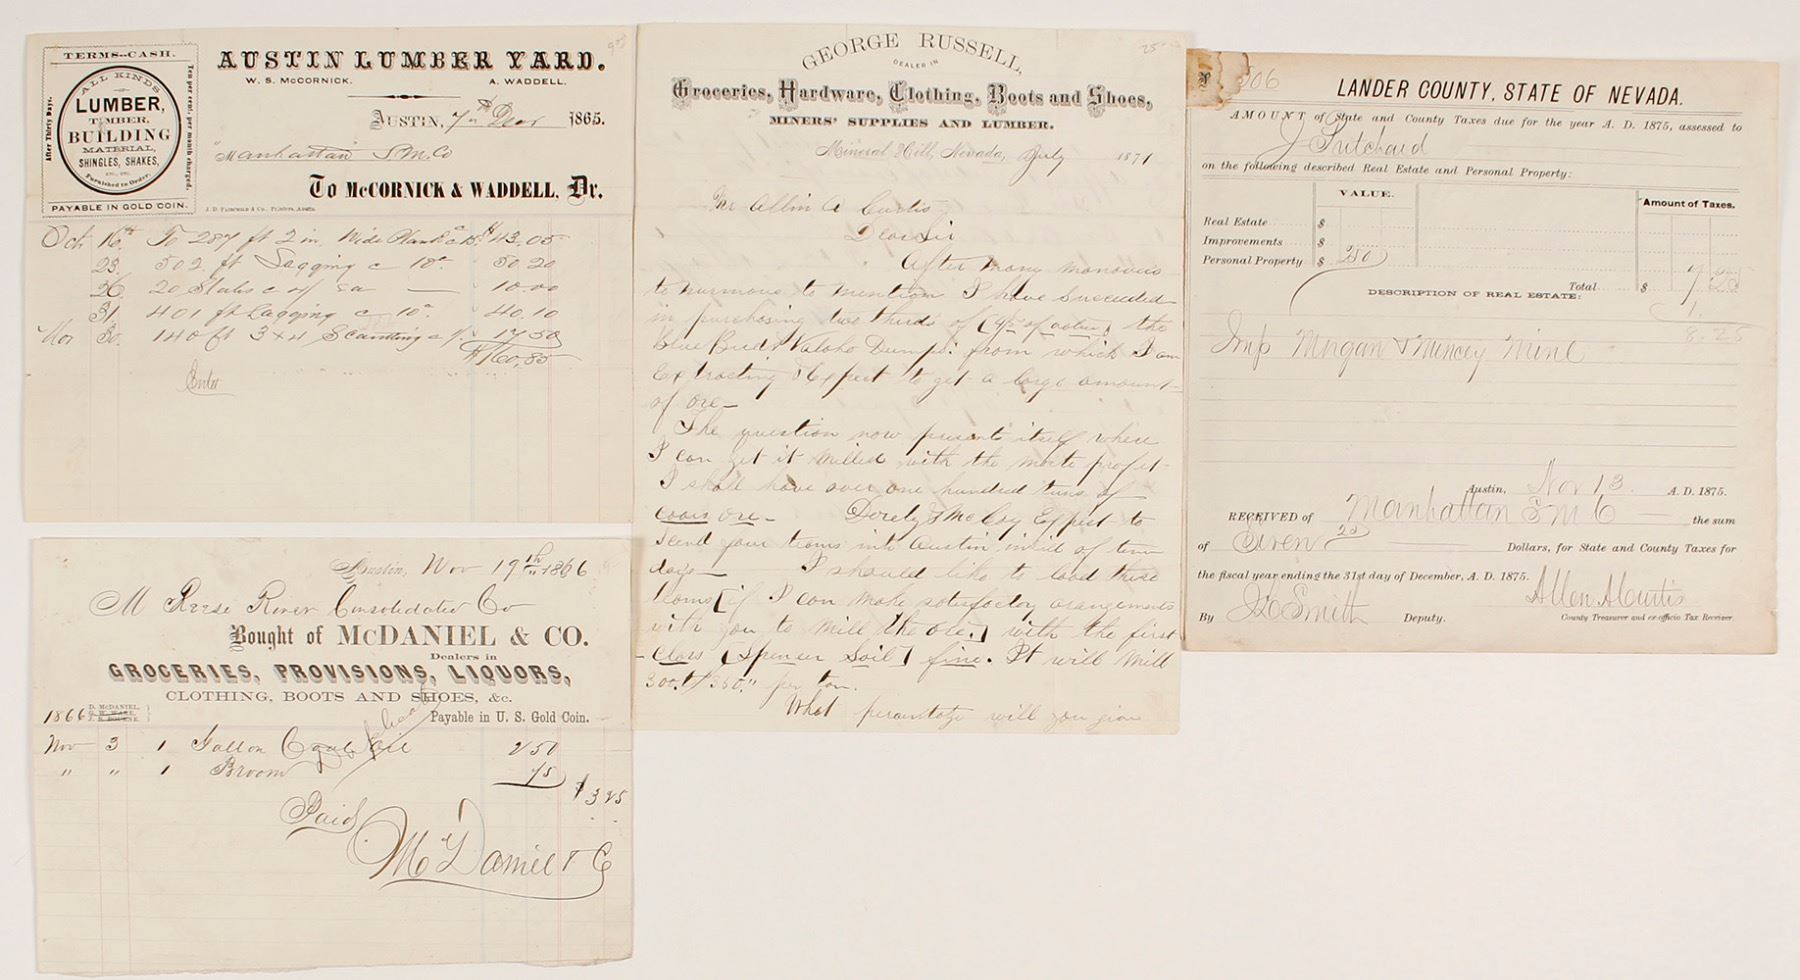 TERMS--CASH.
After Thirty Days,
Ten per cent. per month charged.
ALL KINDS
LUMBER,
TIMBER,
BUILDING
MATERIAL,
SHINGLES, SHAKES,
ETC., ETC.
Furnished to Order.
PAYABLE IN GOLD COIN.
AUSTIN LUMBER YARD.
W. S. McCORNICK. A. WADDELL.
AUSTIN, 7th Decr 1865.
Manhattan S. M. Co
To McCORNICK & WADDELL, Dr.
Oct 16th To 287 ft 2 in. Wide Plank c 15 $43.05
23. 502 ft Lagging c 10c 50 20
26. 20 Slabs c 10.00
31. 401 ft Lagging c 10c 40.10
Nov 30. 140 ft 3 x 4 Scantling c 17 50
$160,85
Austin, Nov 19th 1866
M Reese River Consolidated Co
Bought of McDANIEL & CO.
Dealers in
GROCERIES, PROVISIONS, LIQUORS,
CLOTHING, BOOTS AND SHOES, &c.
D. McDANIEL,
1866 Payable in U. S. Gold Coin.
Nov 3 1 Gallon Coal Oil 2 50
" " 1 Broom 75
$3 25
Paid
McDaniel & Co
25
GEORGE RUSSELL,
DEALER IN
Groceries, Hardware, Clothing, Boots and Shoes,
MINERS' SUPPLIES AND LUMBER.
Mineral Hill, Nevada, July 1871
Mr Allin A Curtis
Dear Sir
After many manovers
to numrous to mention I have Succeeded
in purchasing two thirds of the
Blue Bird & Dumps: from which I am
Extracting & Expect to get a large amount
of ore—
The question now presents itself where
I can get it milled with the moste profit
I shall have over one hundred tuns of
ore— & McCoy Expect to
Send your teams into Austin, in id of ten
days— I should like to load these
teams [if I can make satisfactory arangements
with you to mill the ore.] with the first
Class [Spenser Soil] fine. It will mill
300.to 350." per ton.
What persentage will you give
506
LANDER COUNTY, STATE OF NEVADA.
AMOUNT of State and County Taxes due for the year A. D. 1875, assessed to
J Pritchard
on the following described Real Estate and Personal Property:
VALUE.
Amount of Taxes.
Real Estate $
Improvements $
Personal Property $ 250
Total $ 7 25
DESCRIPTION OF REAL ESTATE:
1.
8.25
Imp Morgan & Muncey Mine
Austin, Nov 13 A. D. 1875.
RECEIVED of Manhattan S M Co the sum
of Seven 25 Dollars, for State and County Taxes for
the fiscal year ending the 31st day of December, A. D. 1875.
Allen A Curtis
By Smith Deputy. County Treasurer and ex-officio Tax Receiver.